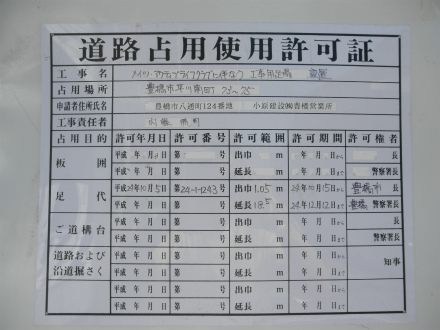 道路占用使用許可証
工事名 工事用足場 設置
占用場所 豊橋市平川南町 23-25
申請者住所氏名 豊橋市八通町124番地 小原建設㈱豊橋営業所
工事責任者
占用目的 許可年月日 許可番号 許可範囲 許可期間 許可権者
板囲 平成 年 月 日 第 号 出巾 m 年 月 日から 長
平成 年 月 日 第 号 延長 m 年 月 日まで 警察署長
足代 平成24年10月5日 第24-1-1243号 出巾 1.05 m 24年10月15日から 豊橋市長
平成 年 月 日 第 号 延長 18.5 m 24年12月12日まで 豊橋 警察署長
ご道構台 平成 年 月 日 第 号 出巾 m 年 月 日から 長
平成 年 月 日 第 号 延長 m 年 月 日まで 警察署長
道路および沿道掘さく 平成 年 月 日 第 号 出巾 m 年 月 日から 知事
平成 年 月 日 第 号 延長 m 年 月 日まで
平成 年 月 日 第 号 出巾 m 年 月 日から
平成 年 月 日 第 号 延長 m 年 月 日まで